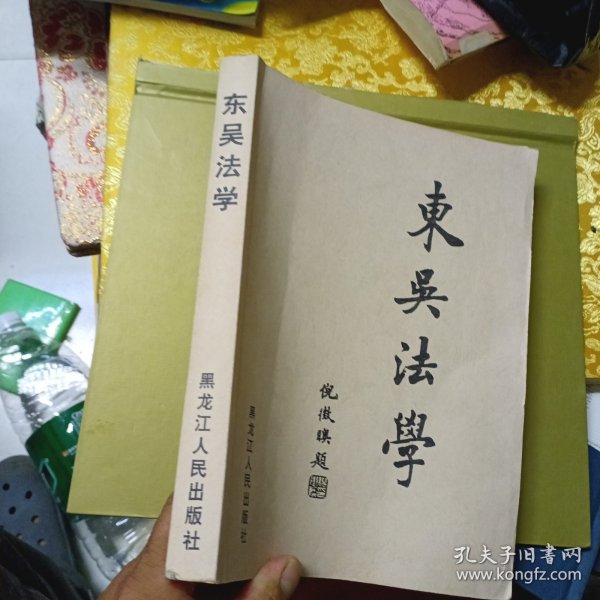 东吴法学
黑龙江人民出版社
東吳法學
倪徵𣋉題
黑龙江人民出版社
孔夫子旧書网
www.kongfz.com